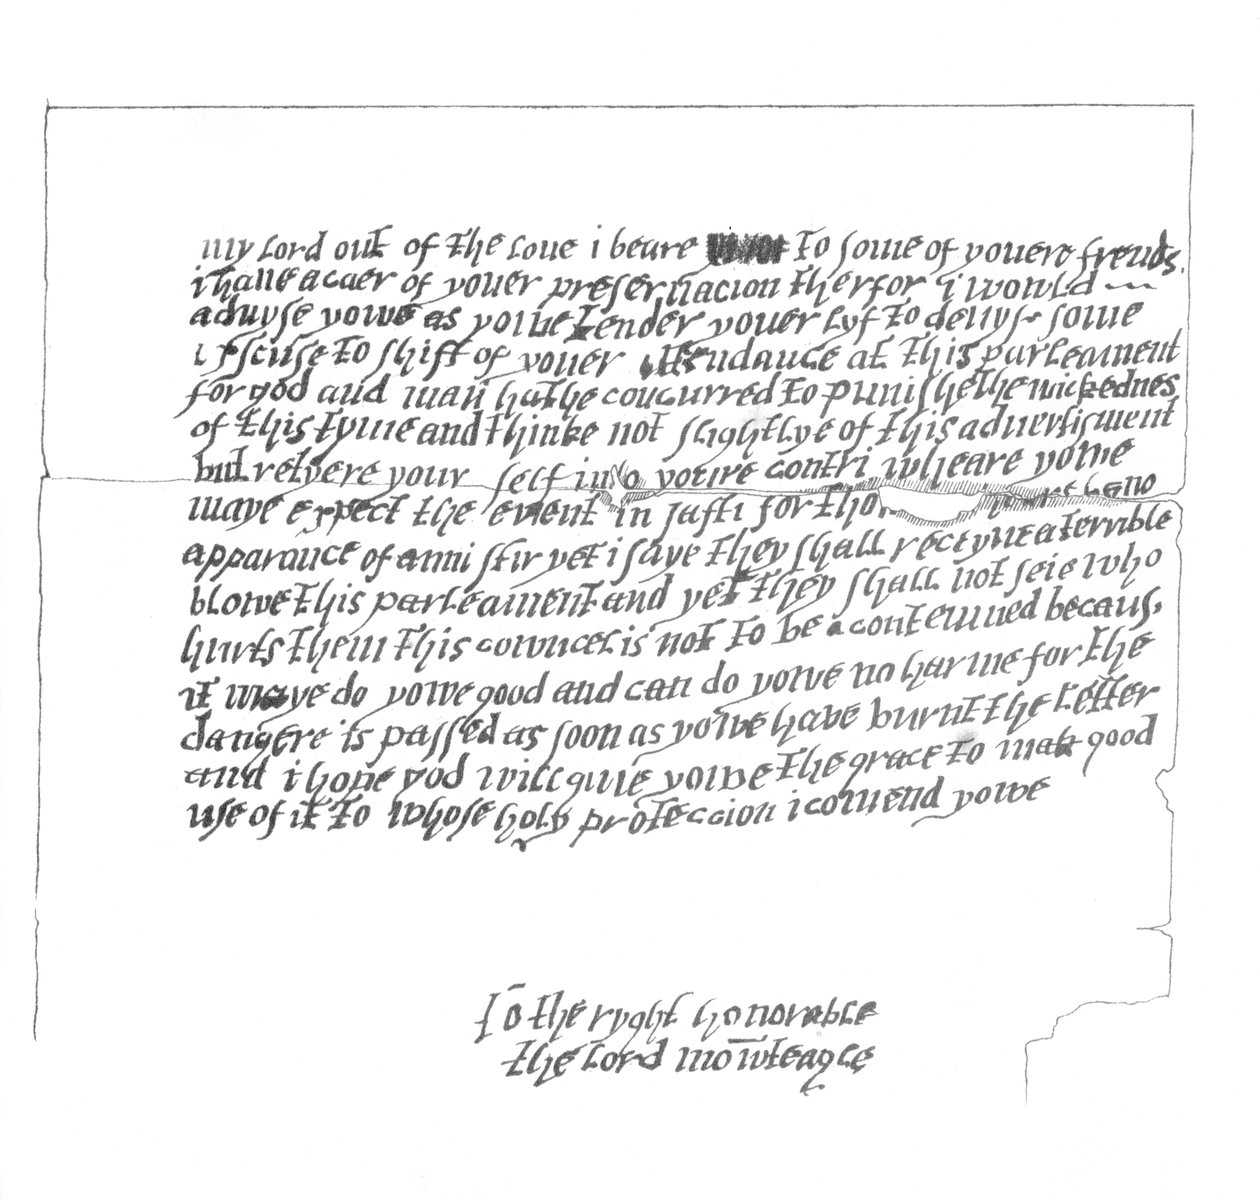 my lord out of the loue i beare to some of youere frends
i haue a caer of youer preseruacion therfor i would
aduyse yowe as yowe tender youer lyf to deuyse some
exscuse to shift of youer attendance at this parleament
for god and man hathe concurred to punishe the wickednes
of this tyme and thinke not slightlye of this aduertisment
but retyere youre self into youre contri wheare yowe
maye expect the event in safti for tho
apparance of anni stir yet i saye they shall receyve a terrible
blowe this parleament and yet they shall not seie who
hurts them this cowncel is not to be acontemned becaus
it maye do yowe good and can do yowe no harme for the
dangere is passed as soon as yowe have burnt the letter
and i hope god will giue yowe the grace to mak good
use of it to whose holy proteccion i comend yowe
To the ryght honorable
the lord mowteagle